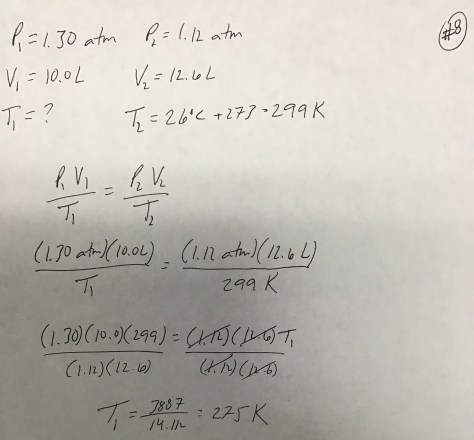 #8
P₁ = 1.30 atm P₂ = 1.12 atm
V₁ = 10.0 L V₂ = 12.6 L
T₁ = ? T₂ = 26°C + 273 = 299 K
P₁ V₁ / T₁ = P₂ V₂ / T₂
(1.30 atm)(10.0L) / T₁ = (1.12 atm)(12.6 L) / 299 K
(1.30)(10.0)(299) / (1.12)(12.6) = (1.12)(12.6) T₁ / (1.12)(12.6)
T₁ = 3887 / 14.112 = 275 K